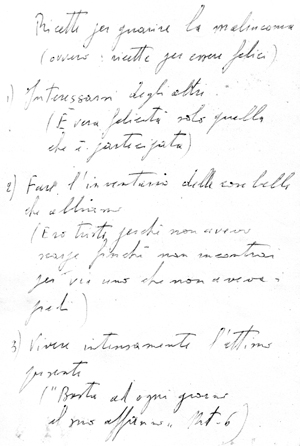 Ricette per guarire la malinconia
(ovvero: ricette per essere felici)
1) Interessarsi degli altri.
(È vera felicità solo quella
che è partecipata)
2) Fare l'inventario delle cose belle
che abbiamo
(Ero triste, perché non avevo
scarpe finché non incontrai
per via uno che non aveva i
piedi)
3) Vivere intensamente l'attimo
presente
("Basta ad ogni giorno
il suo affanno" Mt-6)